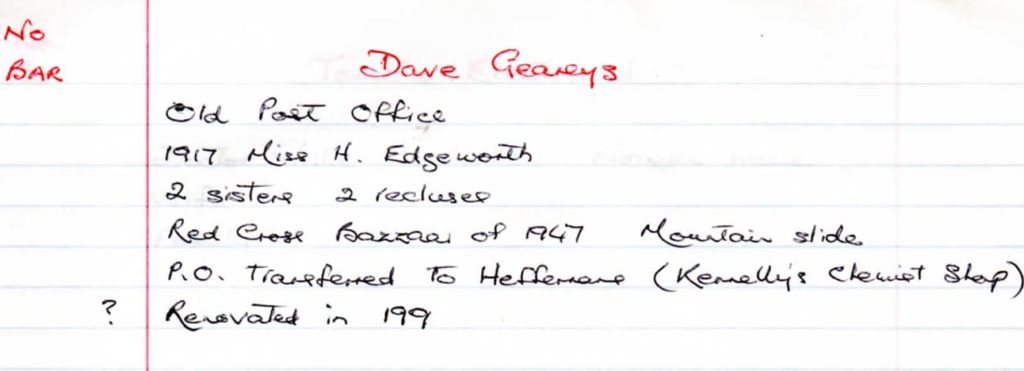 No
BAR
Dave Geareys
Old Post Office
1917 Miss H. Edgeworth
2 sisters 2 recluses
Red Cross Bazzaar of 1947 Mountain slide
P.O. Transferred To Heffernans (Kennelly's Chemist Shop)
? Renovated in 199